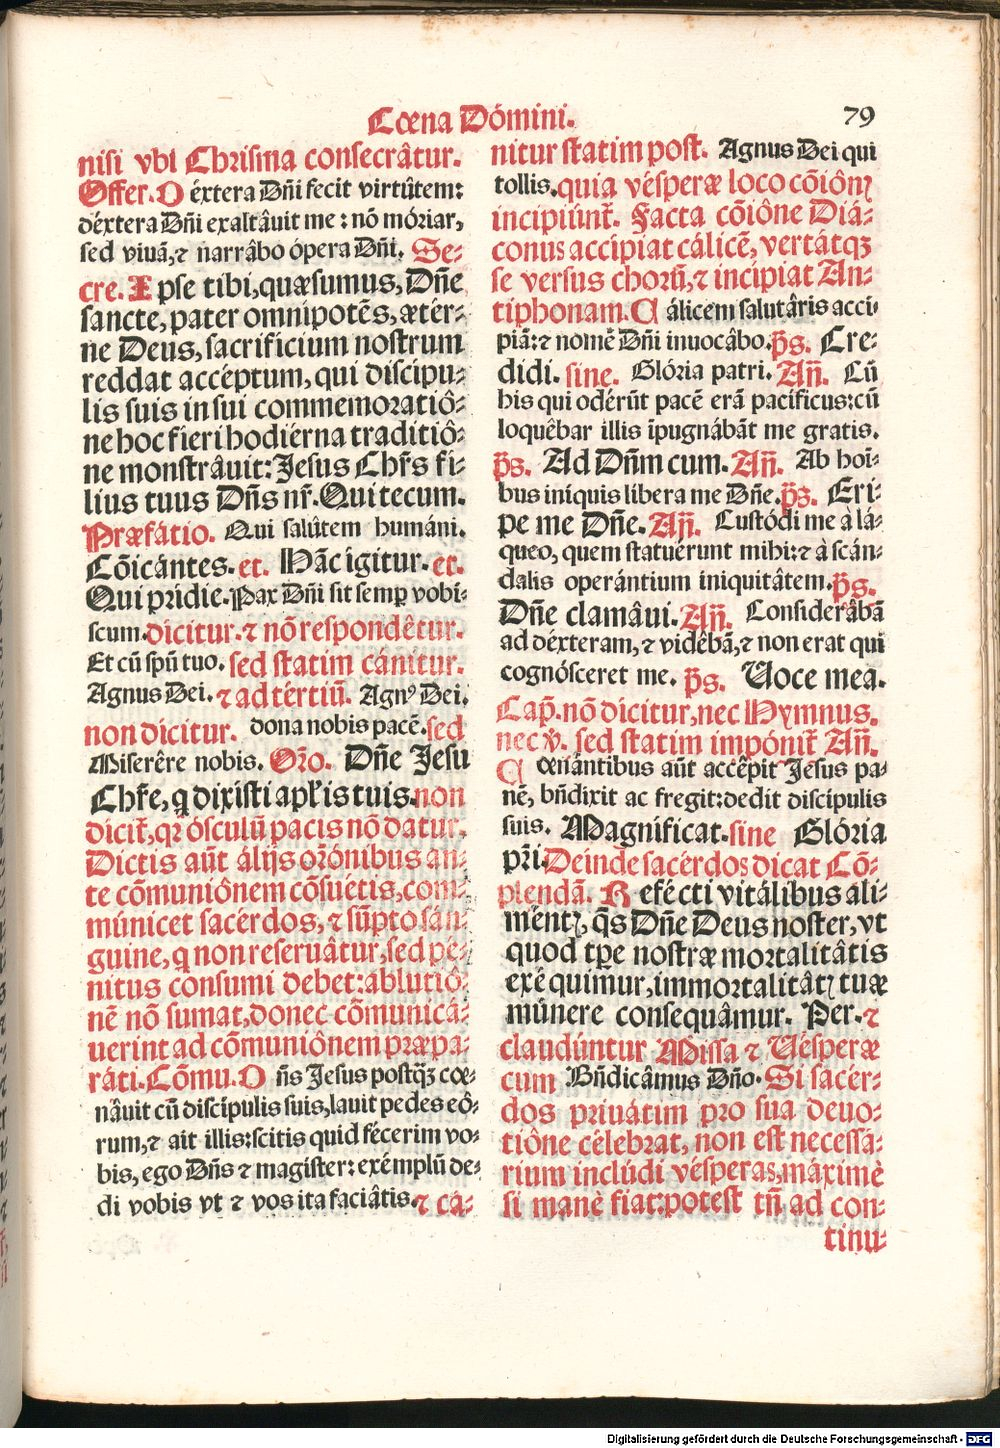 Cœna Dómini.
79
nisi vbi Chrisma consecrâtur.
Offer. D éxtera Dñi fecit virtûtem:
déxtera Dñi exaltâuit me: nõ móriar,
sed viuã, ⁊ narrâbo ópera Dñi. Se-
cre. I pse tibi, quæsumus, Dñe
sancte, pater omnipotẽs, ætér-
ne Deus, sacrificium nostrum
reddat accéptum, qui discipu-
lis suis in sui commemoratiô-
ne hoc fieri hodierna traditiô-
ne monstrâuit: Jesus Chr̃s fi-
lius tuus Dñs nr̃. Qui tecum.
Præfátio. Qui salûtem humáni.
Cõicántes. et. Hãc igitur. et.
Qui prídie. Pax Dñi sit semꝑ vobi-
scum. dicitur. ⁊ nõ respondêtur.
Et cũ spũ tuo. sed statim cánitur.
Agnus Dei. ⁊ ad tértiũ. Agnꝰ Dei.
non dicitur. dona nobis pacẽ. sed
Miserêre nobis. Orõ. Dñe Jesu
Chr̃e, q̃ dixisti apl̃is tuis. non
dicit̃, qꝛ ósculũ pacis nõ datur.
Dictis aũt álijs orõnibus an-
te cõmuniónem cõsuétis, com-
múnicet sacérdos, ⁊ sũpto sán-
guine, q̃ non reseruâtur, sed pé-
nitus consumi debet: ablutiô-
nẽ nõ sumat, donec cõmunicá-
uerint ad cõmuniônem præpa-
ráti. Cõmu. D ñs Jesus postqꝫ cœ-
nâuit cũ discípulis suis, lauit pedes eô-
rum, ⁊ ait illis: scitis quid fécerim vo-
bis, ego Dñs ⁊ magister: exémplũ de-
di vobis vt ⁊ vos ita faciâtis. ⁊ cá-
nitur statim post. Agnus Dei qui
tollis. quia vésperæ loco cõiônꝭ
incipiúnt̃. Facta cõiône Diá-
conus accipiat cálicẽ, vertátqꝫ
se versus chorũ, ⁊ incipiat An-
tiphonam. C álicem salutâris acci-
piã: ⁊ nomẽ Dñi inuocâbo. p̃s. Cre-
didi. sine. Glória patri. Añ. Cũ
his qui odérũt pacẽ erã pacificus: cũ
loquêbar illis ĩpugnábãt me gratis.
p̃s. Ad Dñm cum. Añ. Ab hoĩ-
bus iniquis libera me Dñe. p̃s. Eri-
pe me Dñe. Añ. Custódi me à lá-
queo, quem statuérunt mihi: ⁊ à scán-
dalis operántium iniquitâtem. p̃s.
Dñe clamâui. Añ. Considerâbã
ad déxteram, ⁊ vidêbã, ⁊ non erat qui
cognósceret me. p̃s. Voce mea.
Cap̃. nõ dicitur, nec Hymnus.
nec ṽ. sed statim impónit̃ Añ.
C œnántibus aũt accêpit Jesus pa-
nẽ, bñdixit ac fregit: dedit discipulis
suis. Magnificat. sine Glória
pr̃i. Deinde sacérdos dicat Cõ-
plendã. R efécti vitálibus ali-
méntꝭ, q̃s Dñe Deus noster, vt
quod tp̃e nostræ mortalitâtis
exéquimur, immortalitâtꝭ tuæ
múnere consequâmur. Per. ⁊
claudúntur Missa ⁊ Vésperæ
cum Bñdicâmus Dño. Si sacér-
dos priuátim pro sua deuo-
tiône célebrat, non est necessá-
rium inclúdi vésperas, máximè
si manè fiat: potest tñ ad con-
tinu-
Digitalisierung gefördert durch die Deutsche Forschungsgemeinschaft - DFG